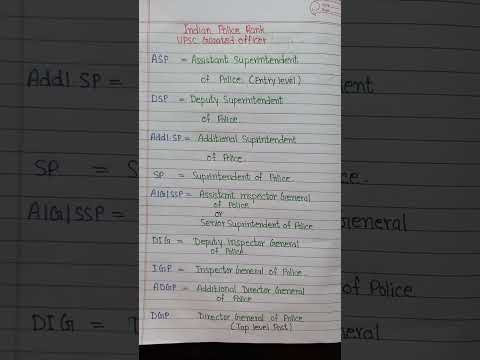 Indian Police Rank
UPSC Gazated officer
ASP = Assistant Superintendent
of Police (Entry level)
DSP = Deputy Superintendent
of Police
Addl.SP = Additional Suprintendent
of Police.
SP = Suprintendent of Police.
AIG|SSP = Assistant Inspector General
of Police
or
Senior Suprintendent of Police
DIG = Deputy Inspector General
of Police.
IGP = Inspector General of Police.
ADGP = Additional Director General
of Police
DGP Director General of Police
(Top level Post)
Addl.SP =
SP =
AIG|SSP =
DIG =
General
Police
General